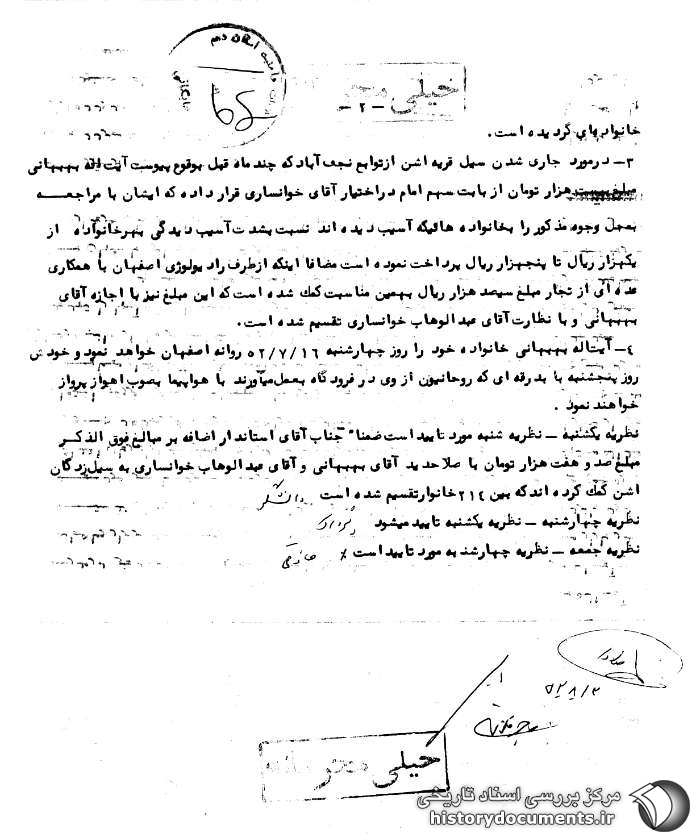 واحدیه استان دهم
بایگانی
خیلی محرمانه
-۲-
خانواده‌ای گردیده است.
۳- در مورد جاری شدن سیل قریه اشن از توابع نجف آباد که چند ماه قبل بوقوع پیوست آیت اله بهبهانی
مبلغ بیست هزار تومان از بابت سهم امام در اختیار آقای خوانساری قرار داده که ایشان با مراجعه
بعمل وجوه مذکور را بخانواده هائیکه آسیب دیده اند نسبت بشدت آسیب دیدگی بهر خانواده از
یکهزار ریال تا پنجهزار ریال پرداخت نموده است مضافا اینکه از طرف رادیولوژی اصفهان با همکاری
عده ای از تجار مبلغ سیصد هزار ریال بهمین مناسبت کمک شده است که این مبلغ نیز با اجازه آقای
بهبهانی و با نظارت آقای عبدالوهاب خوانساری تقسیم شده است.
۴- آیت‌اله بهبهانی خانواده خود را روز چهارشنبه ۵۲/۷/۱۶ روانه اصفهان خواهد نمود و خودش
روز پنجشنبه با بدرقه ای که روحانیون از وی در فرودگاه بعمل میآورند با هواپیما بصوب اهواز پرواز
خواهند نمود.
نظریه یکشنبه - نظریه شنبه مورد تایید است ضمنا" جناب آقای استاندار اضافه بر مبالغ فوق الذکر
مبلغ صد و هفت هزار تومان با صلاحدید آقای بهبهانی و آقای عبدالوهاب خوانساری به سیل زدگان
اشن کمک کرده اند که بین ۲۱۴ خانوار تقسیم شده است دانشگر
نظریه چهارشنبه - نظریه یکشنبه تایید میشود
نظریه جمعه - نظریه چهارشنبه مورد تایید است
۵۲/۸/۲
خیلی محرمانه
مرکز بررسی اسناد تاریخی
historydocuments.ir